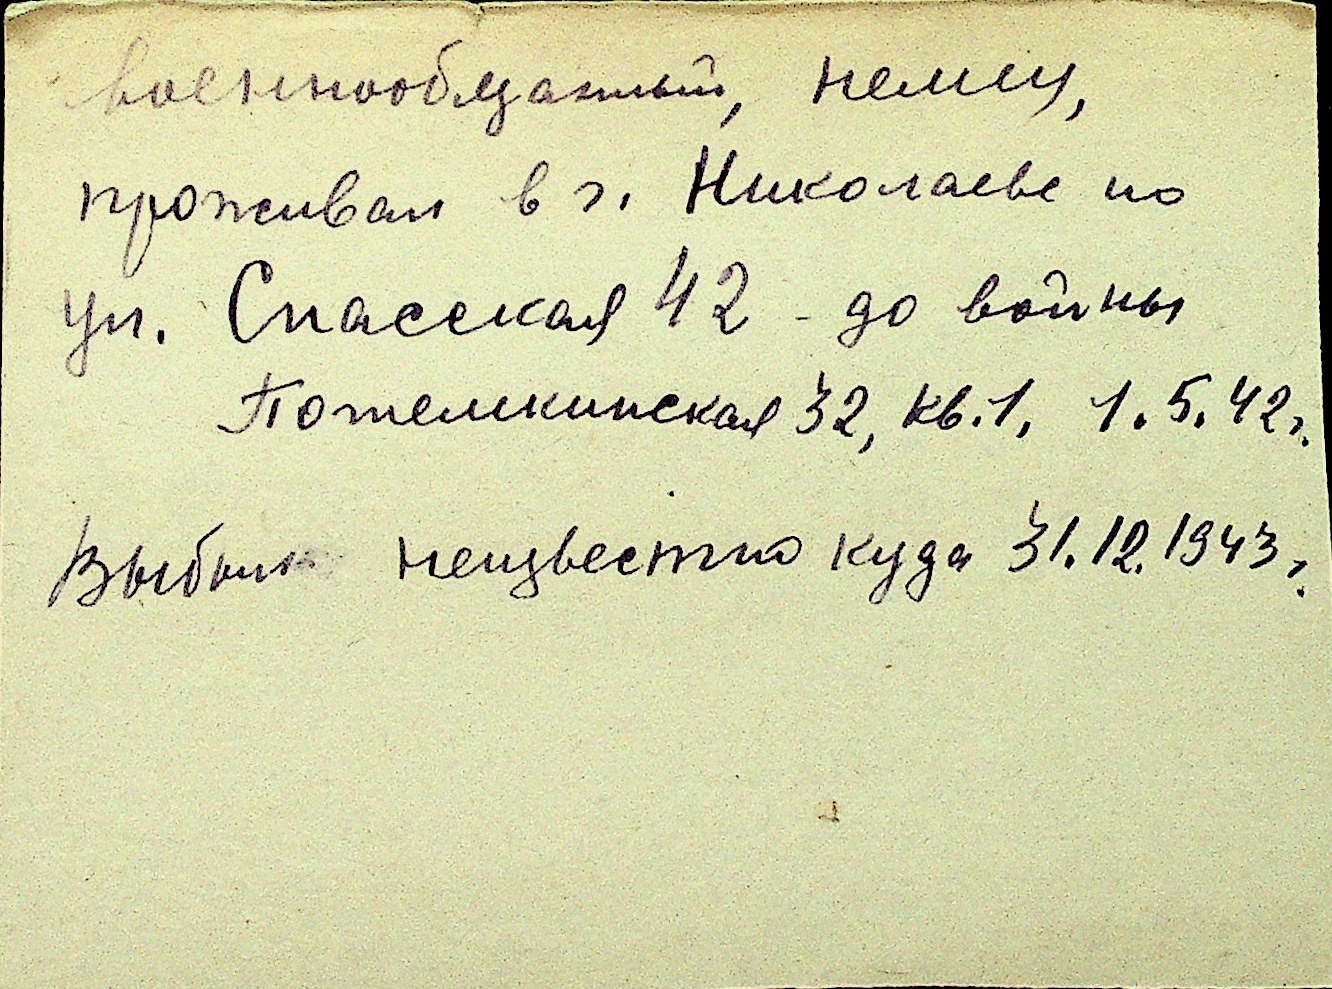 военнообязанный, немец,
проживал в г. Николаеве по
ул. Спасская 42 - до войны
Потемкинская 32, кв. 1, 1.5.42 г.
Выбыл неизвестно куда 31.12.1943 г.